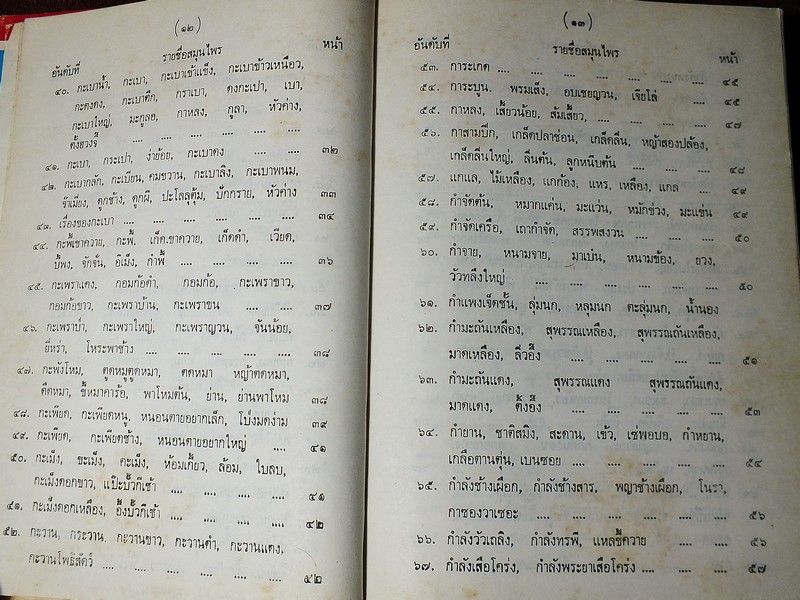 (๑๒)
อันดับที่ รายชื่อสมุนไพร หน้า
๔๐. กะเบาน้ำ, กะเบา, กะเบาเข้าแข็ง, กะเบาข้าวเหนียว,
กะตงคง, กะเบาตึก, กราเบา, ดงกะเปา, เบา,
กะเบาใหญ่, มะกูลอ, กาหลง, กูลา, หัวค่าง,
ตั้วฮวงจี๊ .... .... .... .... .... .... ๓๒
๔๑. กะเบา, กระเปา, ง่ายง้อย, กะเบาดง .... .... ๓๒
๔๒. กะเบากลัก, กะเบียน, คมขวาน, กะเบาลิง, กะเบาพนม,
จ๊าเมี่ยง, ดูกช้าง, ดูกผี, ปะโลลุตุ้ม, บักกราย, หัวค่าง ๓๓
๔๓. เรื่องของกะเบา .... .... .... .... .... .... ๓๔
๔๔. กะพี้เขาควาย, กะพี้, เก็ดเขาควาย, เก็ดดำ, เวียด,
บ้พง, จักจั่น, อีเม็ง, กำพี้ .... .... .... .... ๓๖
๔๕. กะเพราแดง, กอมก้อดำ, กอมก้อ, กะเพราขาว,
กอมก้อขาว, กะเพราบ้าน, กะเพราขน .... .... ๓๗
๔๖. กะเพราป่า, กะเพราใหญ่, กะเพราญวน, จันน้อย,
ยี่หร่า, โหระพาช้าง .... .... .... .... .... ๓๘
๔๗. กะพังโหม, ตูดหมูตูดหมา, ตดหมา หญ้าตดหมา,
ตืดหมา, ขี้หมาคาร้อ, พาโหมต้น, ย่าน, ย่านพาโหม ๓๘
๔๘. กะเพียด, กะเพียดหนู, หนอนตายอยากเล็ก, โปงมดง่าม ๓๙
๔๙. กะเพียด, กะเพียดช้าง, หนอนตายอยากใหญ่ .... .... ๔๑
๕๐. กะเม็ง, ขะเม็ง, คะเม็ง, ห้อมเกี้ยว, ล้อม, ใบลบ,
กะเม็งดอกขาว, แป๊ะบั้วกีเช้า .... .... .... .... ๔๑
๕๑. กะเม็งดอกเหลือง, อึ้งบั้วกีเช้า .... .... .... .... ๔๒
๕๒. กะวาน, กระวาน, กะวานขาว, กะวานดำ, กะวานแดง,
กะวานโพธิสัตว์ .... .... .... .... .... .... ๔๒
(๑๓)
อันดับที่ รายชื่อสมุนไพร หน้า
๕๓. การะเกด .... .... .... .... .... .... .... ๔๕
๕๔. การะบูน. พรมเส็ง, อบเชยญวน, เจียโล่ .... ๔๕
๕๕. กาหลง, เสี้ยวน้อย, ส้มเสี้ยว, .... .... .... .... ๔๗
๕๖. กาสามปีก, เกล็ดปลาช่อน, เกล็ดลิ่น, หญ้าสองปล้อง,
เกล็ดลิ่นใหญ่, ลิ่นต้น, ลูกหนีบต้น .... .... .... ๔๘
๕๗. แกแล, ไม้เหลือง, แกก้อง, แหร, เหลือง, แกล .... ๔๙
๕๘. กำจัดต้น, หมากแค่น, มะแว่น, หมักข่วง, มะแข่น ๔๙
๕๙. กำจัดเครือ, เถากำจัด, สรรพลงวน .... .... .... ๕๐
๖๐. กำจาย, หนามจาย, มาเบ้น, หนามช้อง, ยวง,
งัวทลึงใหญ่ .... .... .... .... .... .... ๕๐
๖๑. กำแพงเจ็ดชั้น, ลุ่มนก, หลุมนก ตะลุ่มนก, น้ำนอง
๖๒. กำมะถันเหลือง, สุพรรณเหลือง, สุพรรณถันเหลือง,
มาดเหลือง, ลิ่วอึ๊ง .... .... .... .... .... ๕๑
๖๓. กำมะถันแดง, สุพรรณแดง สุพรรณถันแดง,
มาดแดง, ตั้งอึ้ง .... .... .... .... .... ๕๓
๖๔. กำยาน, ชาติสมิง, สะดาน, เข้ว, เช่พอบอ, กำหยาน,
เกลือตานตุ่น, เบนซอย .... .... .... .... .... ๕๔
๖๕. กำลังช้างเผือก, กำลังช้างสาร, พญาช้างเผือก, โนรา,
กาซองวาเซอะ .... .... .... .... .... .... ๕๖
๖๖. กำลังวัวเถลิง, กำลังทรพี, แหลขี้ควาย .... .... ๕๖
๖๗. กำลังเสือโคร่ง, กำลังพระยาเสือโคร่ง .... .... .... ๕๗